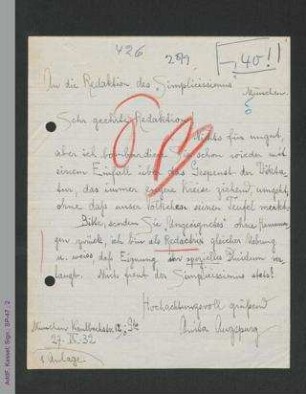 426
27/9.
-,40!
An die Redaktion des "Simplicissimus"
München.
Sehr geehrte Redaktion
Nichts für ungut,
aber ich bombardiere Sie schon wieder mit
einem Einfall über das Gespenst der Dikta-
tur, das immer engere Kreise ziehend, umgeht,
ohne daß unser Völkchen seinen Teufel merkt.
Bitte, senden Sie Ungeeignetes ohne Hemmun-
gen zurück, ich bin als Redactrix gleicher Lahrung
u. weiss daß Eignung ein spezielles Fluidum ver-
langt. Mich freut der Simplicissimus stets!
Hochachtungsvoll grüßend
Anita Augspurg
München Kaulbachstr. 12
27. IX. 32
1 Anlage
AddF, Kassel; Sign.: SP-47 ; 2